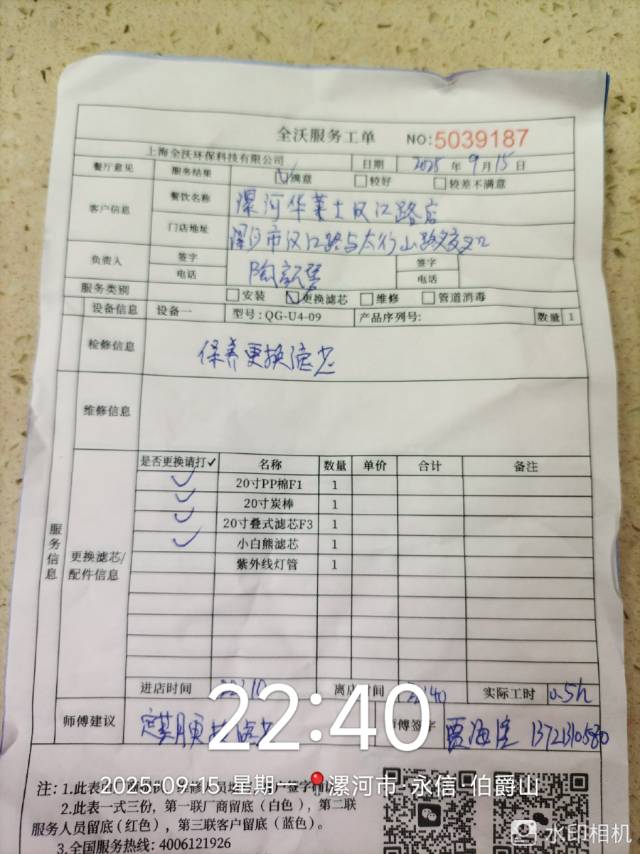 全沃服务工单 NO:5039187
上海全沃环保科技有限公司 日期 2025年9月15日
餐厅意见 服务结果 ☑满意 □较好 □较差不满意
客户信息 餐饮名称 漯河华莱士汉江路店
门店地址 漯河市汉江路与太行山路交叉口
负责人 签字 签字
电话 电话
服务类别 □安装 ☑更换滤芯 □维修 □管道消毒
设备信息 设备一 型号:QG-U4-09 产品序列号: 数量 1
检修信息 保养更换滤芯
维修信息
服务信息
更换滤芯/配件信息
是否更换请打✓ 名称 数量 单价 合计 备注
✓ 20寸PP棉F1 1
✓ 20寸炭棒 1
✓ 20寸叠式滤芯F3 1
✓ 小白熊滤芯 1
紫外线灯管 1
进店时间 离店时间 实际工时 0.5h
师傅建议 定期更换滤芯 师傅签字
22:40
2025-09-15 星期一 漯河市·永信·伯爵山
注: 1.此表
2.此表一式三份，第一联厂商留底（白色），第二联
服务人员留底(红色），第三联客户留底（蓝色）。
3.全国服务热线: 4006121926
水印相机